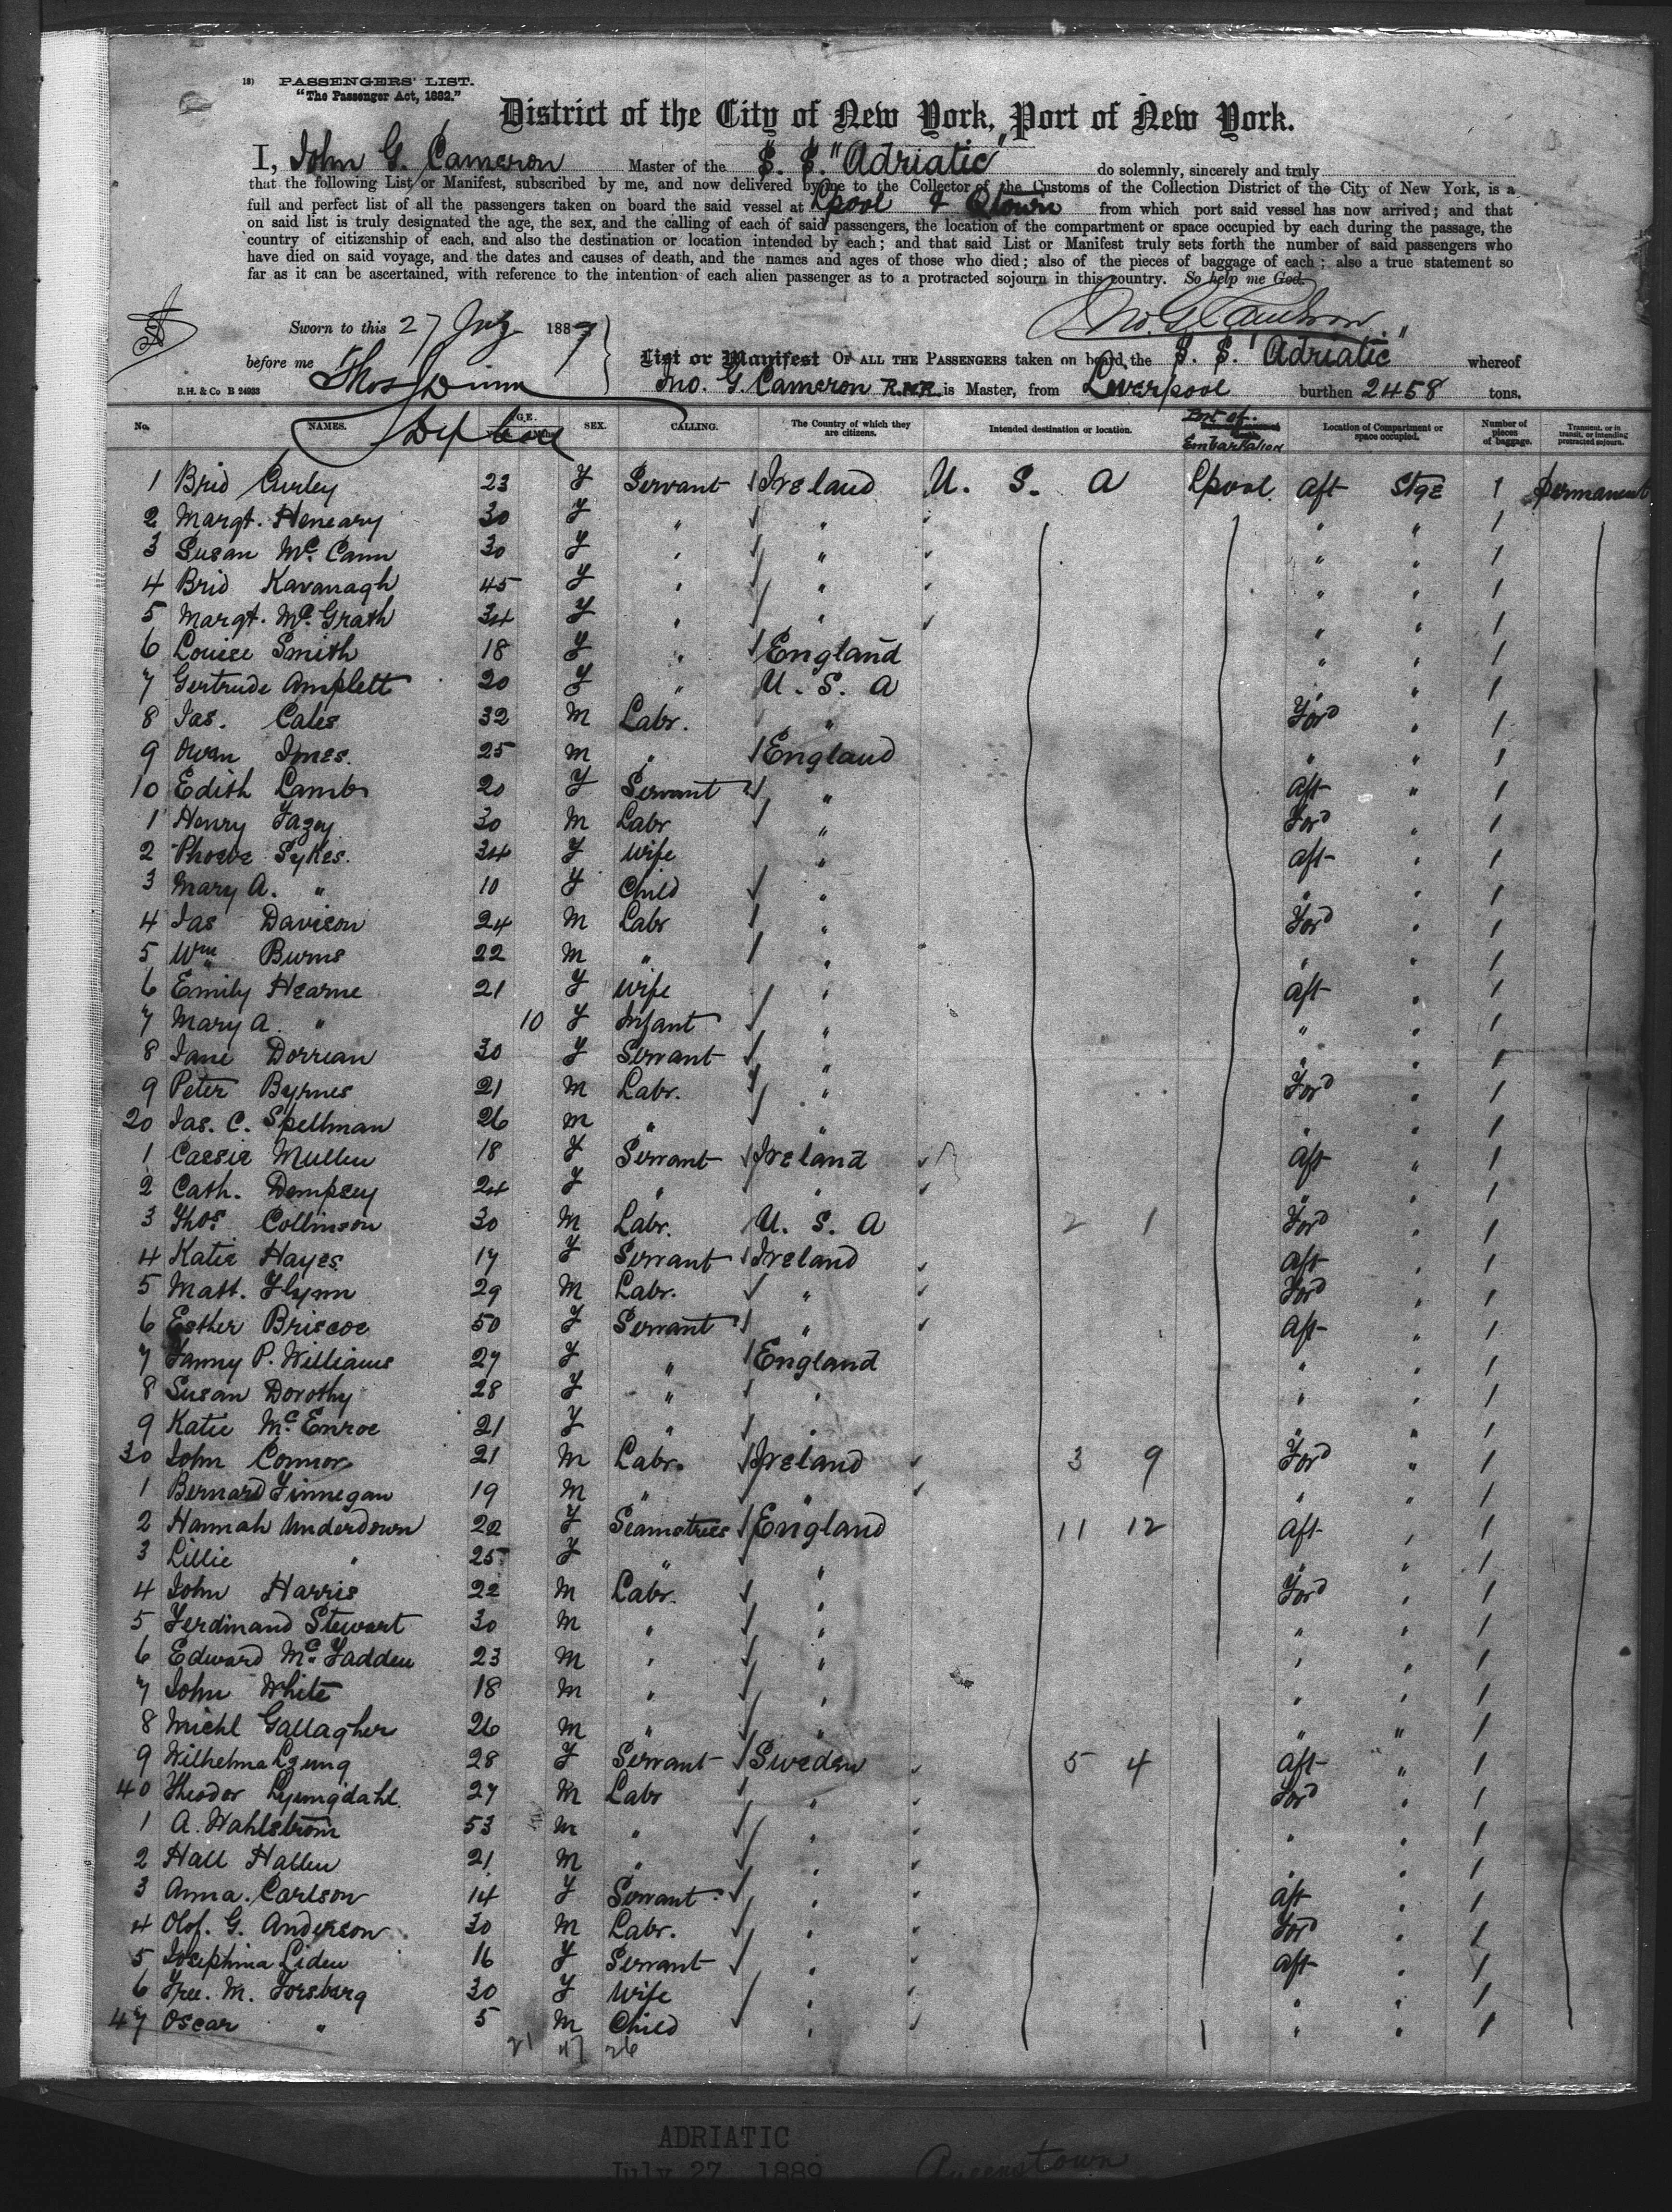 18) PASSENGERS' LIST.
"The Passenger Act, 1882."
District of the City of New York, Port of New York.
I, John G. Cameron Master of the S. S. "Adriatic" do solemnly, sincerely and truly
that the following List or Manifest, subscribed by me, and now delivered by me to the Collector of the Customs of the Collection District of the City of New York, is a
full and perfect list of all the passengers taken on board the said vessel at Lpool & Qtown from which port said vessel has now arrived; and that
on said list is truly designated the age, the sex, and the calling of each of said passengers, the location of the compartment or space occupied by each during the passage, the
country of citizenship of each, and also the destination or location intended by each; and that said List or Manifest truly sets forth the number of said passengers who
have died on said voyage, and the dates and causes of death, and the names and ages of those who died; also of the pieces of baggage of each; also a true statement so
far as it can be ascertained, with reference to the intention of each alien passenger as to a protracted sojourn in this country. So help me God.
Jno. G. Cameron
Sworn to this 27 July 188
before me Thos Dunn
List or Manifest OF ALL THE PASSENGERS taken on board the S. S. "Adriatic" whereof
Jno. G. Cameron R.N.R. is Master, from Liverpool burthen 2458 tons.
B.H. & Co B 24933
Dep Coll
No. NAMES. AGE. SEX. CALLING. The Country of which they are citizens. Intended destination or location. Port of Embarkation Location of Compartment or space occupied. Number of pieces of baggage. Transient, or in transit, or intending protracted sojourn.
1 Brid Curley 23 F Servant Ireland U. S. A Lpool Aft Stge 1 Permanent
2 Margt. Heneary 30 F " " " " 1
3 Susan Mc Cann 30 F " " " " 1
4 Brid Kavanagh 45 F " " " " 1
5 Margt. Mc Grath 34 F " " " " 1
6 Louise Smith 18 F " England " " 1
7 Gertrude Amplett 20 F " U. S. A " " 1
8 Jas. Cales 32 M Labr. " Ford " 1
9 Owen Jones. 25 M " England " " 1
10 Edith Lamb 20 F Servant " Aft " 1
1 Henry Fazey 30 M Labr " Ford " 1
2 Phoebe Sykes. 34 F Wife " Aft " 1
3 Mary A. " 10 F Child " " " 1
4 Jas Davison 24 M Labr " Ford " 1
5 Wm Burns 22 M " " " " 1
6 Emily Hearne 21 F Wife " Aft " 1
7 Mary A. " 10 F Infant " " " 1
8 Jane Dorrean 30 F Servant " " " 1
9 Peter Byrnes 21 M Labr. " Ford " 1
20 Jas. C. Spellman 26 M " " " " 1
1 Cassie Mullen 18 F Servant Ireland Aft " 1
2 Cath. Dempsey 24 F " " " " 1
3 Thos. Collinson 30 M Labr. U. S. A 2 1 Ford " 1
4 Katie Hayes 17 F Servant Ireland Aft " 1
5 Matt. Flynn 29 M Labr. " Ford " 1
6 Esther Briscoe 50 F Servant " Aft " 1
7 Fanny P. Williams 27 F " England " " 1
8 Susan Dorothy 28 F " " " " 1
9 Katie McEnroe 21 F " " " " 1
30 John Connor 21 M Labr. Ireland 3 9 Ford " 1
1 Bernard Finnegan 19 M " " " " 1
2 Hannah Underdown 22 F Seamstress England 11 12 Aft " 1
3 Lillie " 25 F " " " " 1
4 John Harris 22 M Labr. " Ford " 1
5 Ferdinand Stewart 30 M " " " " 1
6 Edward Mc Fadden 23 M " " " " 1
7 John White 18 M " " " " 1
8 Michl Gallagher 26 M " " " " 1
9 Wilhelma 28 F Servant Sweden 5 4 Aft " 1
40 Theodor Lyungdahl. 27 M Labr " Ford " 1
1 A. Wahlstrom 53 M " " " " 1
2 Hall Hallen 21 M " " " " 1
3 Anna. Carlson 14 F Servant " Aft " 1
4 Olof. G. Anderson 30 M Labr. " Ford " 1
5 Josephina Liden 16 F Servant " Aft " 1
6 Free. M. Forsberg 30 F Wife " " " 1
47 Oscar " 5 M Child " " " 1
21 47 26
ADRIATIC
July 27, 1889 Queenstown